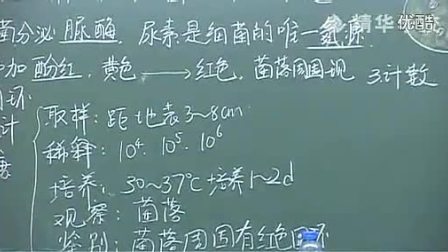 精华
youku 优酷
菌分泌脲酶. 尿素是细菌的唯一氮源
加酚红, 黄色 → 红色, 菌落周围现 3.计数
环
计
取样: 距地表3~8cm
稀释: 10⁴. 10⁵. 10⁶
培养: 30~37℃培养1~2d
观察: 菌落
鉴别: 菌落周围有红色